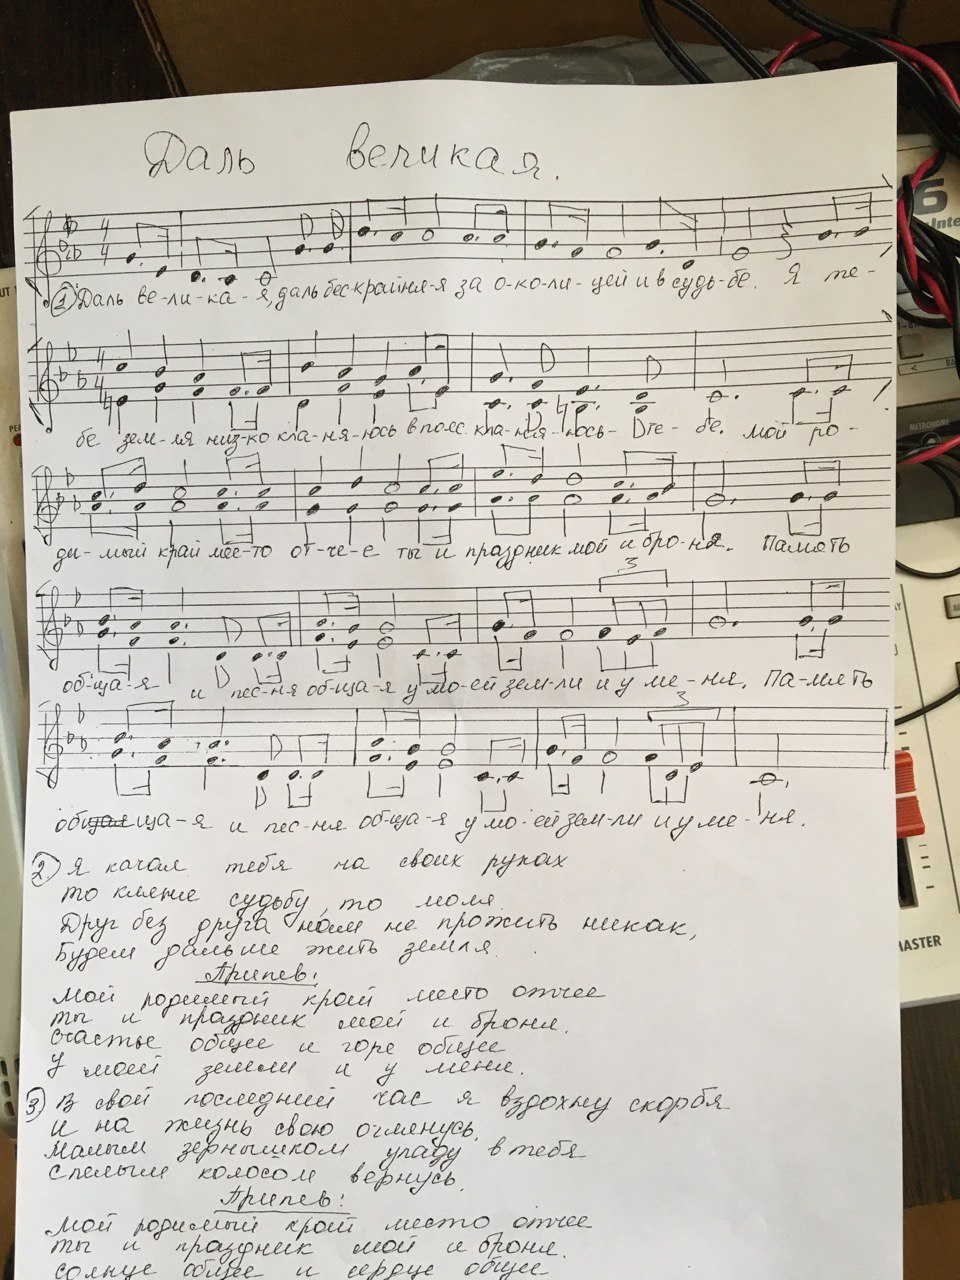 Даль великая.
① Даль ве-ли-ка-я, даль бес-крайня-я за о-ко-ли-цей и в судь-бе. Я те-
бе зем-ля низ-ко кла-ня-юсь в пояс кла-ня-юсь те-бе. мой ро-
ди-мый край мес-то от-че-е ты и праздник мой и бро-ня. Память
3
об-ща-я и пес-ня об-ща-я у мо-ей зем-ли и у ме-ня. Па-мять
3
общая ща-я и пес-ня об-ща-я у мо-ей зем-ли и у ме-ня.
② Я качал тебя на своих руках
то кляня судьбу, то моля
Друг без друга нам не прожить никак,
Будем дальше жить земля.
Припев:
Мой родимый край место отчее
ты и праздник мой и броня.
счастье общее и горе общее
У моей земли и у меня.
③ В свой последний час я вздохну скорбя
и на жизнь свою оглянусь,
Малым зернышком упаду в тебя
Спелым колосом вернусь.
Припев:
Мой родимый край место отчее
ты и праздник мой и броня.
солнце общее и сердце общее
6
Inte
METRONOME
MASTER